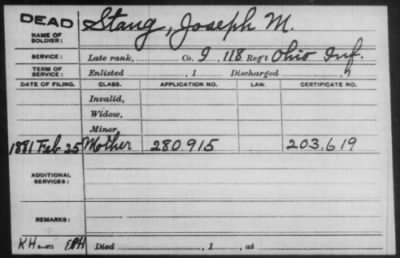 DEAD
NAME OF SOLDIER: Stang, Joseph M.
SERVICE: Late rank, Co. 9, 118 Reg't Ohio Inf.
TERM OF SERVICE: Enlisted , 1 Discharged , 1
DATE OF FILING. CLASS. APPLICATION NO. LAW. CERTIFICATE NO.
Invalid,
Widow,
Minor,
1881 Feb 25 Mother 280.915 203.619
ADDITIONAL SERVICES:
REMARKS:
Died , 1 , at